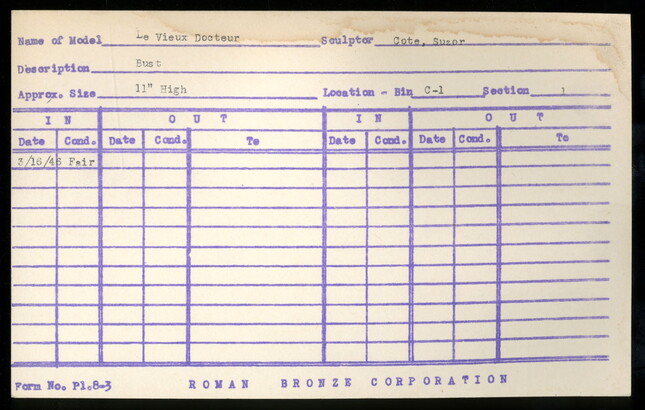 Name of Model Le Vieux Docteur Sculptor Cote, Suzor
Description Bust
Approx. Size 11" High Location - Bin C-1 Section 1
IN OUT IN OUT
Date Cond. Date Cond. To Date Cond. Date Cond. To
3/16/46 Fair
Form No. Pl.8-3 ROMAN BRONZE CORPORATION